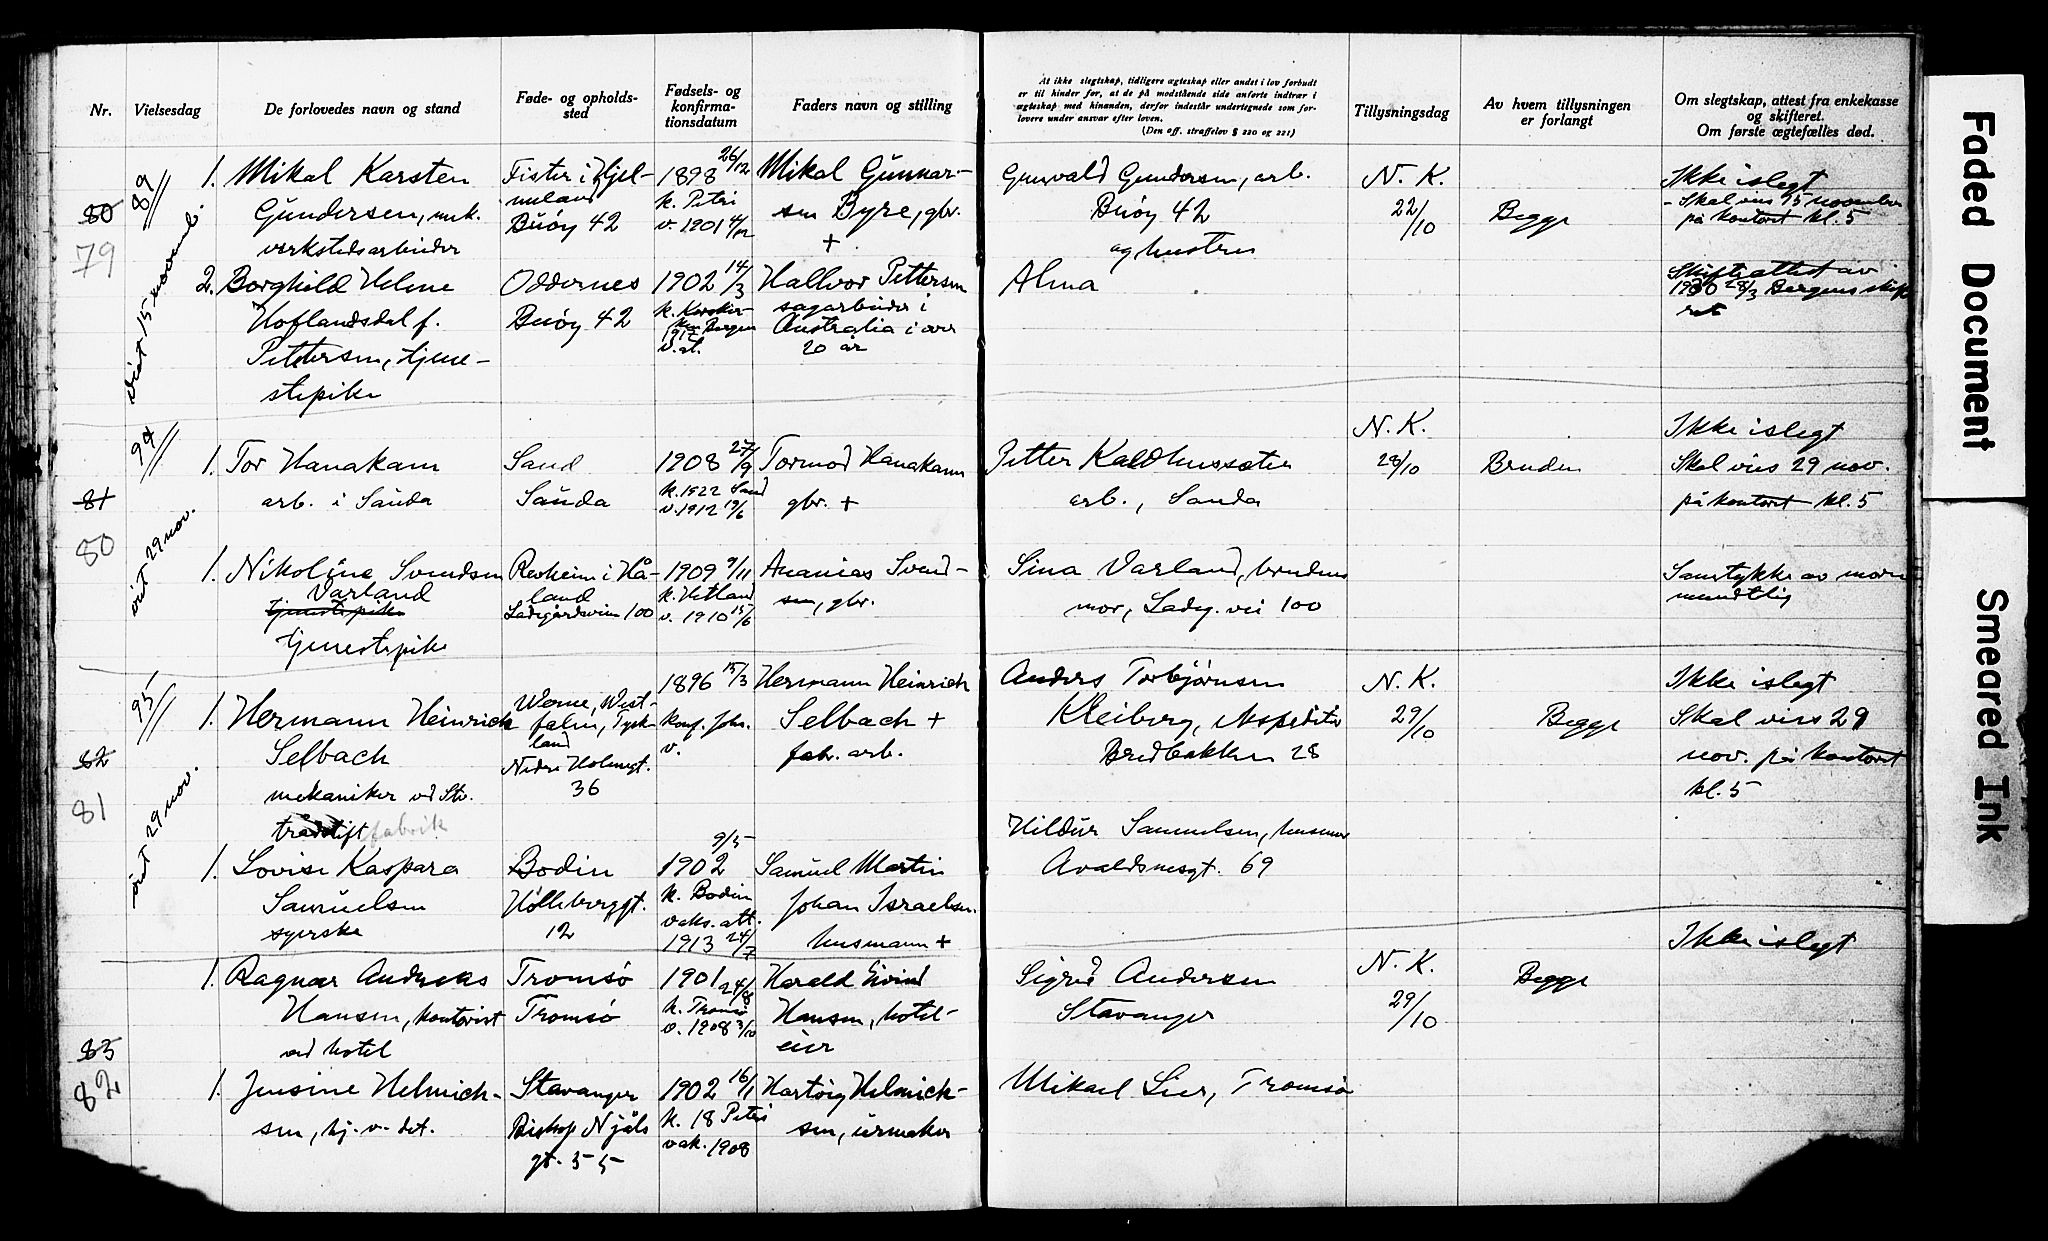 Nr.
Vielsesdag
De forlovedes navn og stand
Føde- og opholds-
sted
Fødsels- og
konfirma-
tionsdatum
Faders navn og stilling
At ikke slegtskap, tidligere ægteskap eller andet i lov forbudt
er til hinder for, at de på modstående side anførte indtrær i
ægteskap med hinanden, derfor indestår undertegnede som for-
lovere under ansvar efter loven.
(Den off. straffelov § 220 og 221)
Tillysningsdag
Av hvem tillysningen
er forlangt
Om slegtskap, attest fra enkekasse
og skifteret.
Om første ægtefælles død.
80
79
89
viet 15 novemb.
1. Mikal Karsten
Gundersen, mek.
verkstedsarbeider
Fister i Hjel-
meland
Buøy 42
1898 26/12
k. Petri
v. 1901 4/12
Mikal Gunnar-
sen Byre, gbr.
+
Gunvald Gundersen, arb.
Buøy 42
og hustru
N. K.
22/10
Begge
Ikke i slegt
- Skal vies 15 november
på kontoret kl. 5
2. Borghild Helene
Hoflandsdal f.
Pettersen, tjene-
stepike
Oddernes
Buøy 42
1902 14/3
k. Korskir-
ken Bergen
1917
v. at.
Hallvor Pettersen
sagarbeider i
Australia i over
20 år
Alma
Skifteattest av
1930 28/3 Bergens skif
ret
81
80
94
viet 29 nov.
1. Tor Hanakam
arb. i Sauda
Sand
Sauda
1908 27/9
k. 1922 Sand
v. 1912 19/6
Tormod Hanakam
gbr. +
Petter Kaldhussæter
arb., Sauda
N. K.
28/10
Bruden
Ikke i slegt
Skal vies 29 nov.
på kontoret kl. 5
1. Nikoline Svendsen
Varland
tjenestepike
tjenestepike
Revheim i Hå-
land
Ladegårdsveien 100
1909 9/11
k. Hetland
v. 1910 15/6
Ananias Svend-
sen, gbr.
Sina Varland, brudens
mor, Ladg. vei 100
Samtykke av moren
mundtlig
82
81
95
viet 29 nov.
1. Hermann Heinrich
Selbach
mekaniker ved Stv.
trådstift fabrik
Werne, West-
falen, Tysk-
land
Nedre Holmegt.
36
1896 15/3
konf. Joh.
v.
Hermann Heinrich
Selbach +
fabr. arb.
Anders Torbjørnsen
Kleiberg, ekspeditør
Bredbakken 28
N. K.
29/10
Begge
Ikke i slegt
Skal vies 29
nov. på kontoret
kl. 5
1. Lovise Kaspara
Samuelsen
syerske
Bodin
Holleberggt.
12
9/5
1902
k. Bodin
vaks. att.
1913 24/7
Samuel Martin
Johan Israelsen
husmann +
Hildur Samuelsen, husmor
Avaldsnesgt. 69
83
82
1. Ragnar Andreas
Hansen, kontorist
ved hotel
Tromsø
Tromsø
1901 24/8
k. Tromsø
v. 1908 3/10
Harald Eivind
Hansen, hotel-
eier
Sigrid Andersen
Stavanger
N. K.
29/10
Begge
Ikke i slegt
1. Jensine Helmich-
sen, hj. v. det.
Stavanger
Biskop Njåls
gt. 55
1902 16/1
k. 18 Petri
vak. 1908
Hartvig Helmich-
sen, urmaker
Mikael Lier, Tromsø
Faded Document
Smeared Ink